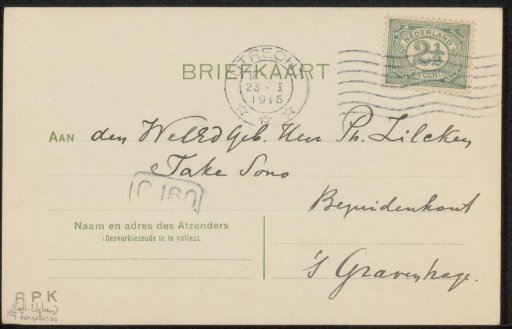 NEDERLAND
2½
CENT
UTRECHT
23 · I
1915
BRIEFKAART
AAN den WelEdGeb. Heer Ph. Zilcken
Take Sono
C 160
Bezuidenhout
Naam en adres des Afzenders
(Desverkiezende in te vullen).
's Gravenhage.
R P K